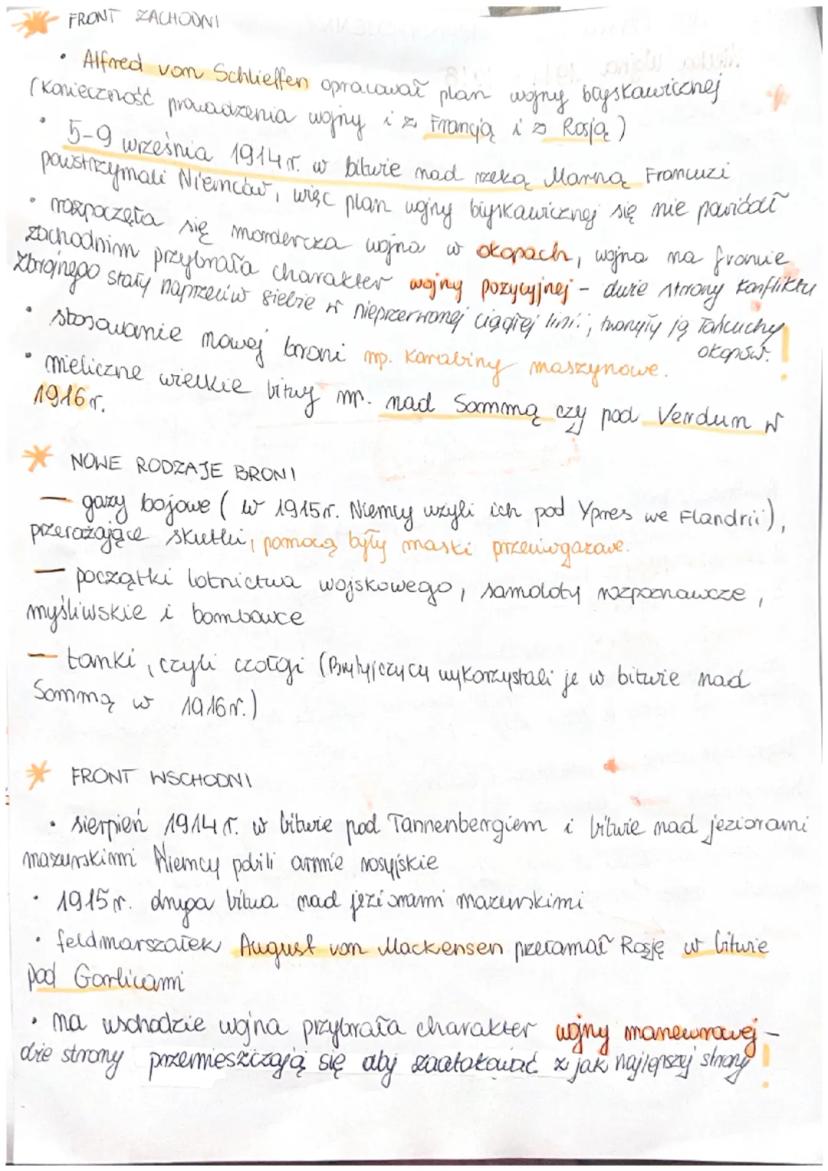 FRONT ZACHODNI
• Alfred von Schlieffen opracował plan wojny błyskawicznej
(konieczność prowadzenia wojny i z Francją i z Rosją)
• 5-9 września 1914 r. w bitwie nad rzeką Marną Francuzi
powstrzymali Niemców, więc plan wojny błyskawicznej się nie powiódł
• rozpoczęła się mordercza wojna w okopach, wojna na froncie
zachodnim przybrała charakter wojny pozycyjnej - dwie strony konfliktu
zbrojnego stały naprzeciw siebie w nieprzerwanej ciągłej linii, tworzyły ją łańcuchy
okopów.
• stosowanie nowej broni np. karabiny maszynowe.
• nieliczne wielkie bitwy np. nad Sommą czy pod Verdun w
1916 r.
NOWE RODZAJE BRONI
— gazy bojowe ( w 1915r. Niemcy użyli ich pod Ypres we Flandrii),
przerażające skutki, pomocą były maski przeciwgazowe.
— początki lotnictwa wojskowego, samoloty rozpoznawcze,
myśliwskie i bombowce
— tanki, czyli czołgi (Brytyjczycy wykorzystali je w bitwie nad
Sommą w 1916r.)
FRONT WSCHODNI
• sierpień 1914 r. w bitwie pod Tannenbergiem i bitwie nad jeziorami
mazurskimi Niemcy pobili armie rosyjskie
• 1915 r. druga bitwa nad jeziorami mazurskimi
• feldmarszałek August von Mackensen przełamał Rosję w bitwie
pod Gorlicami
• na wschodzie wojna przybrała charakter wojny manewrowej -
dwie strony przemieszczają się aby zaatakować z jak najlepszej strony !